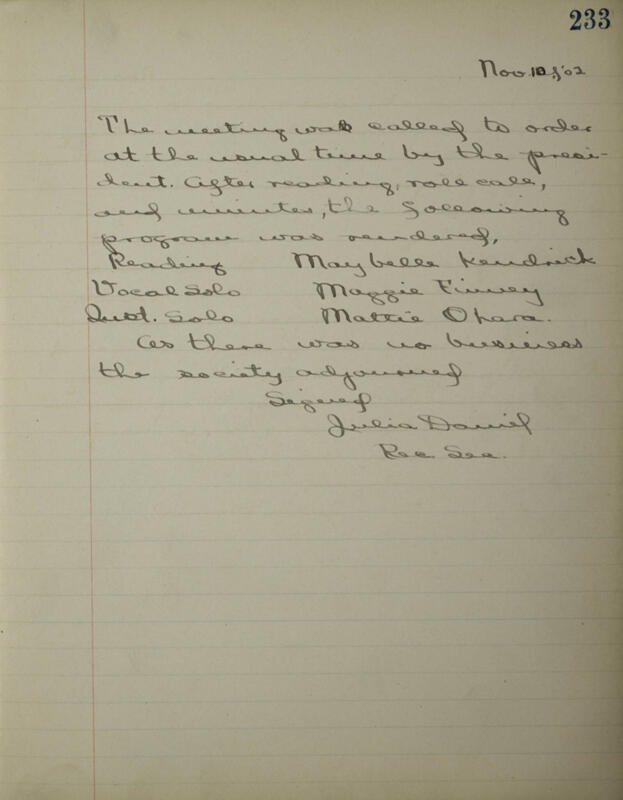 233
Nov. 10, '02
The meeting was called to order
at the usual time by the presi-
dent. After reading, roll call,
and minutes, the following
program was rendered,
Reading Maybelle Kendrick
Vocal Solo Maggie Finney
Inst. Solo Mattie Ohara.
As there was no business
the society adjourned
Signed
Julia Daniel
Rec. Sec.